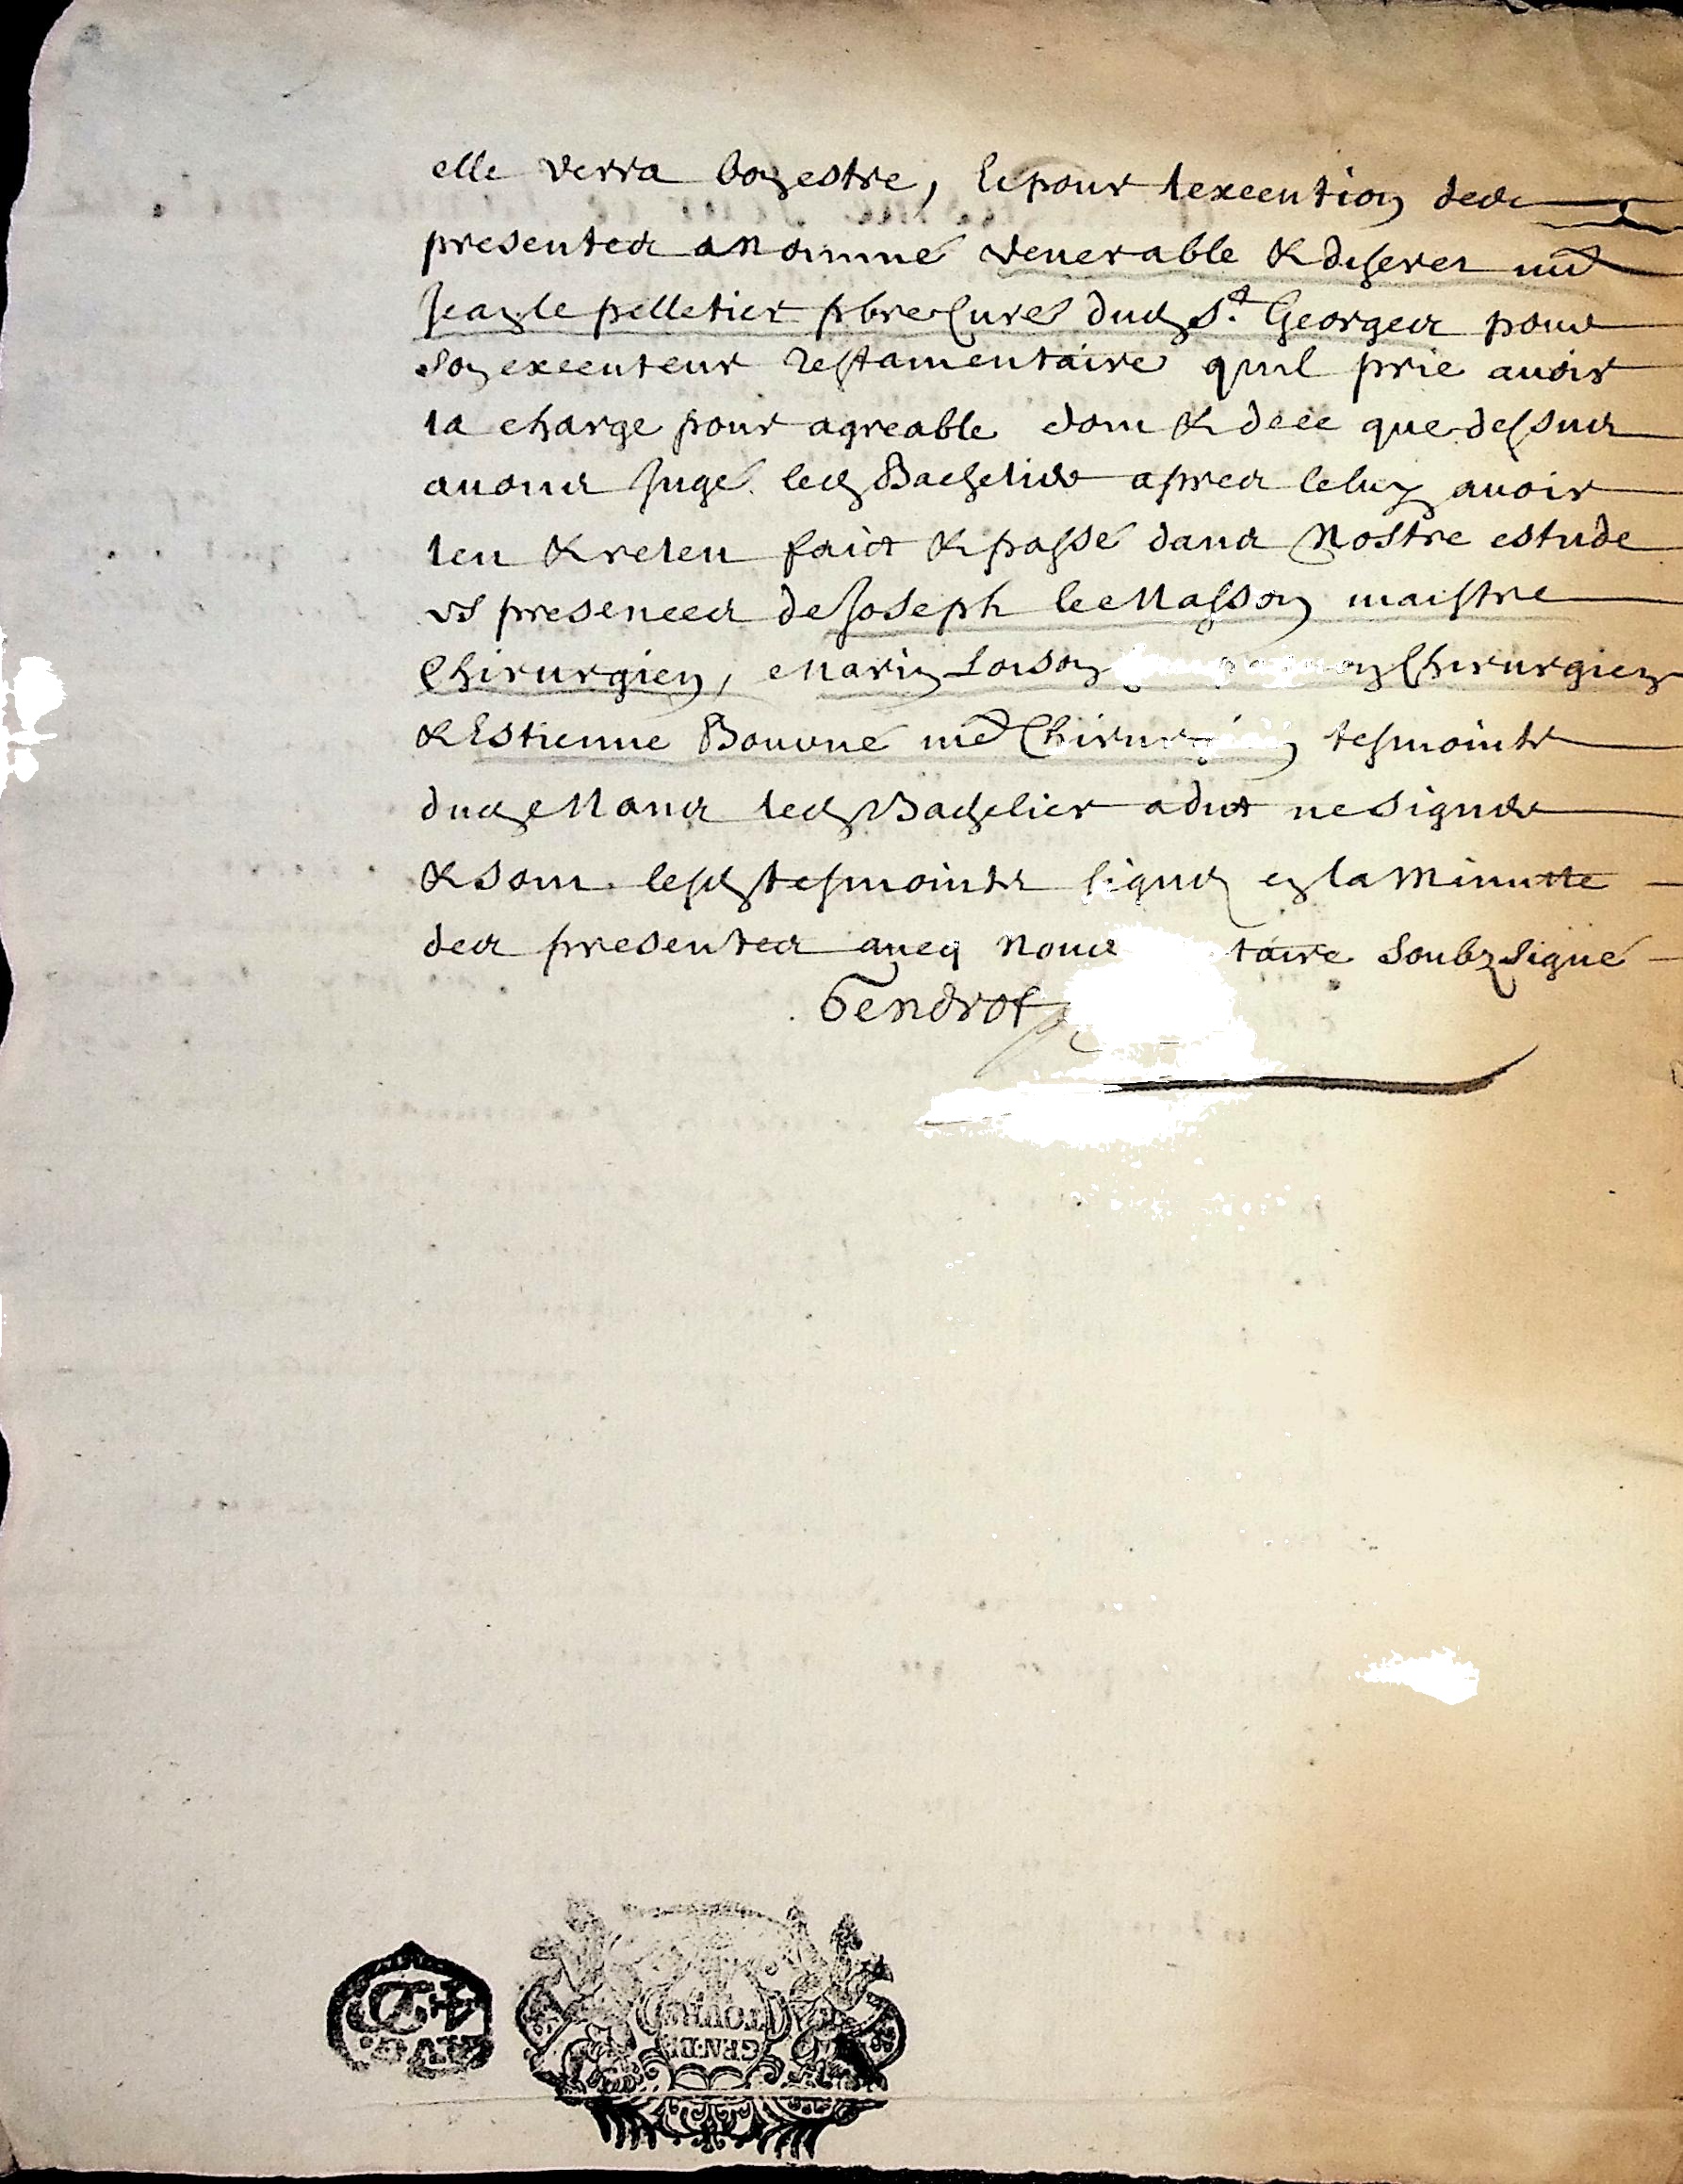 elle verra bon estre, Et pour lexecution des
presentes a nommé venerable & discret me
Jean le pelletier pbre Curé dud St. Georges pour
son executeur testamentaire quil prie avoir
la charge pour agreable dont & de ce que dessus
avons Jugé led Bachelier apres leluy avoir
leu & releu faict & passé dans Nostre estude
es presences de Joseph le Masson maistre
Chirurgien, Marin Loison Chirurgien
& Estienne Bouvné me Chirurgien tesmoins
dud Mans led Bachelier a dict ne signer
& sont lesd tesmoins signez en la Minutte
des presentes avec Nous taire soubz signé
Gendrot
GEN.DE
TOURS